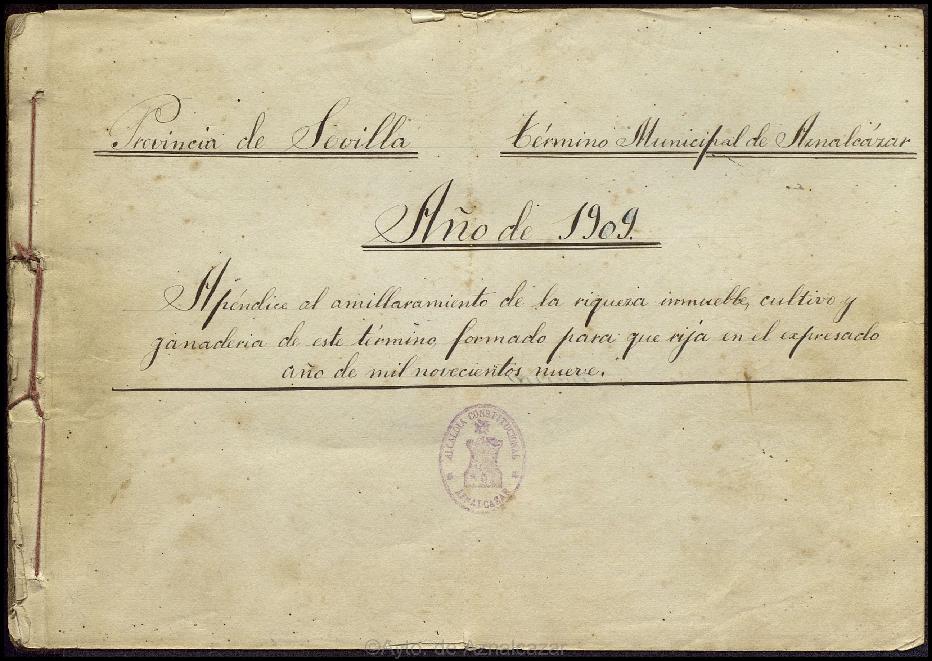 Provincia de Sevilla
término Municipal de Aznalcázar
Año de 1909.
Apéndice al amillaramiento de la riqueza inmueble, cultivo y
ganaderia de este término, formado para que rija en el expresado
año de mil novecientos nueve.
ALCALDIA CONSTITUCIONAL
AZNALCAZAR
©Ayto. de Aznalcázar